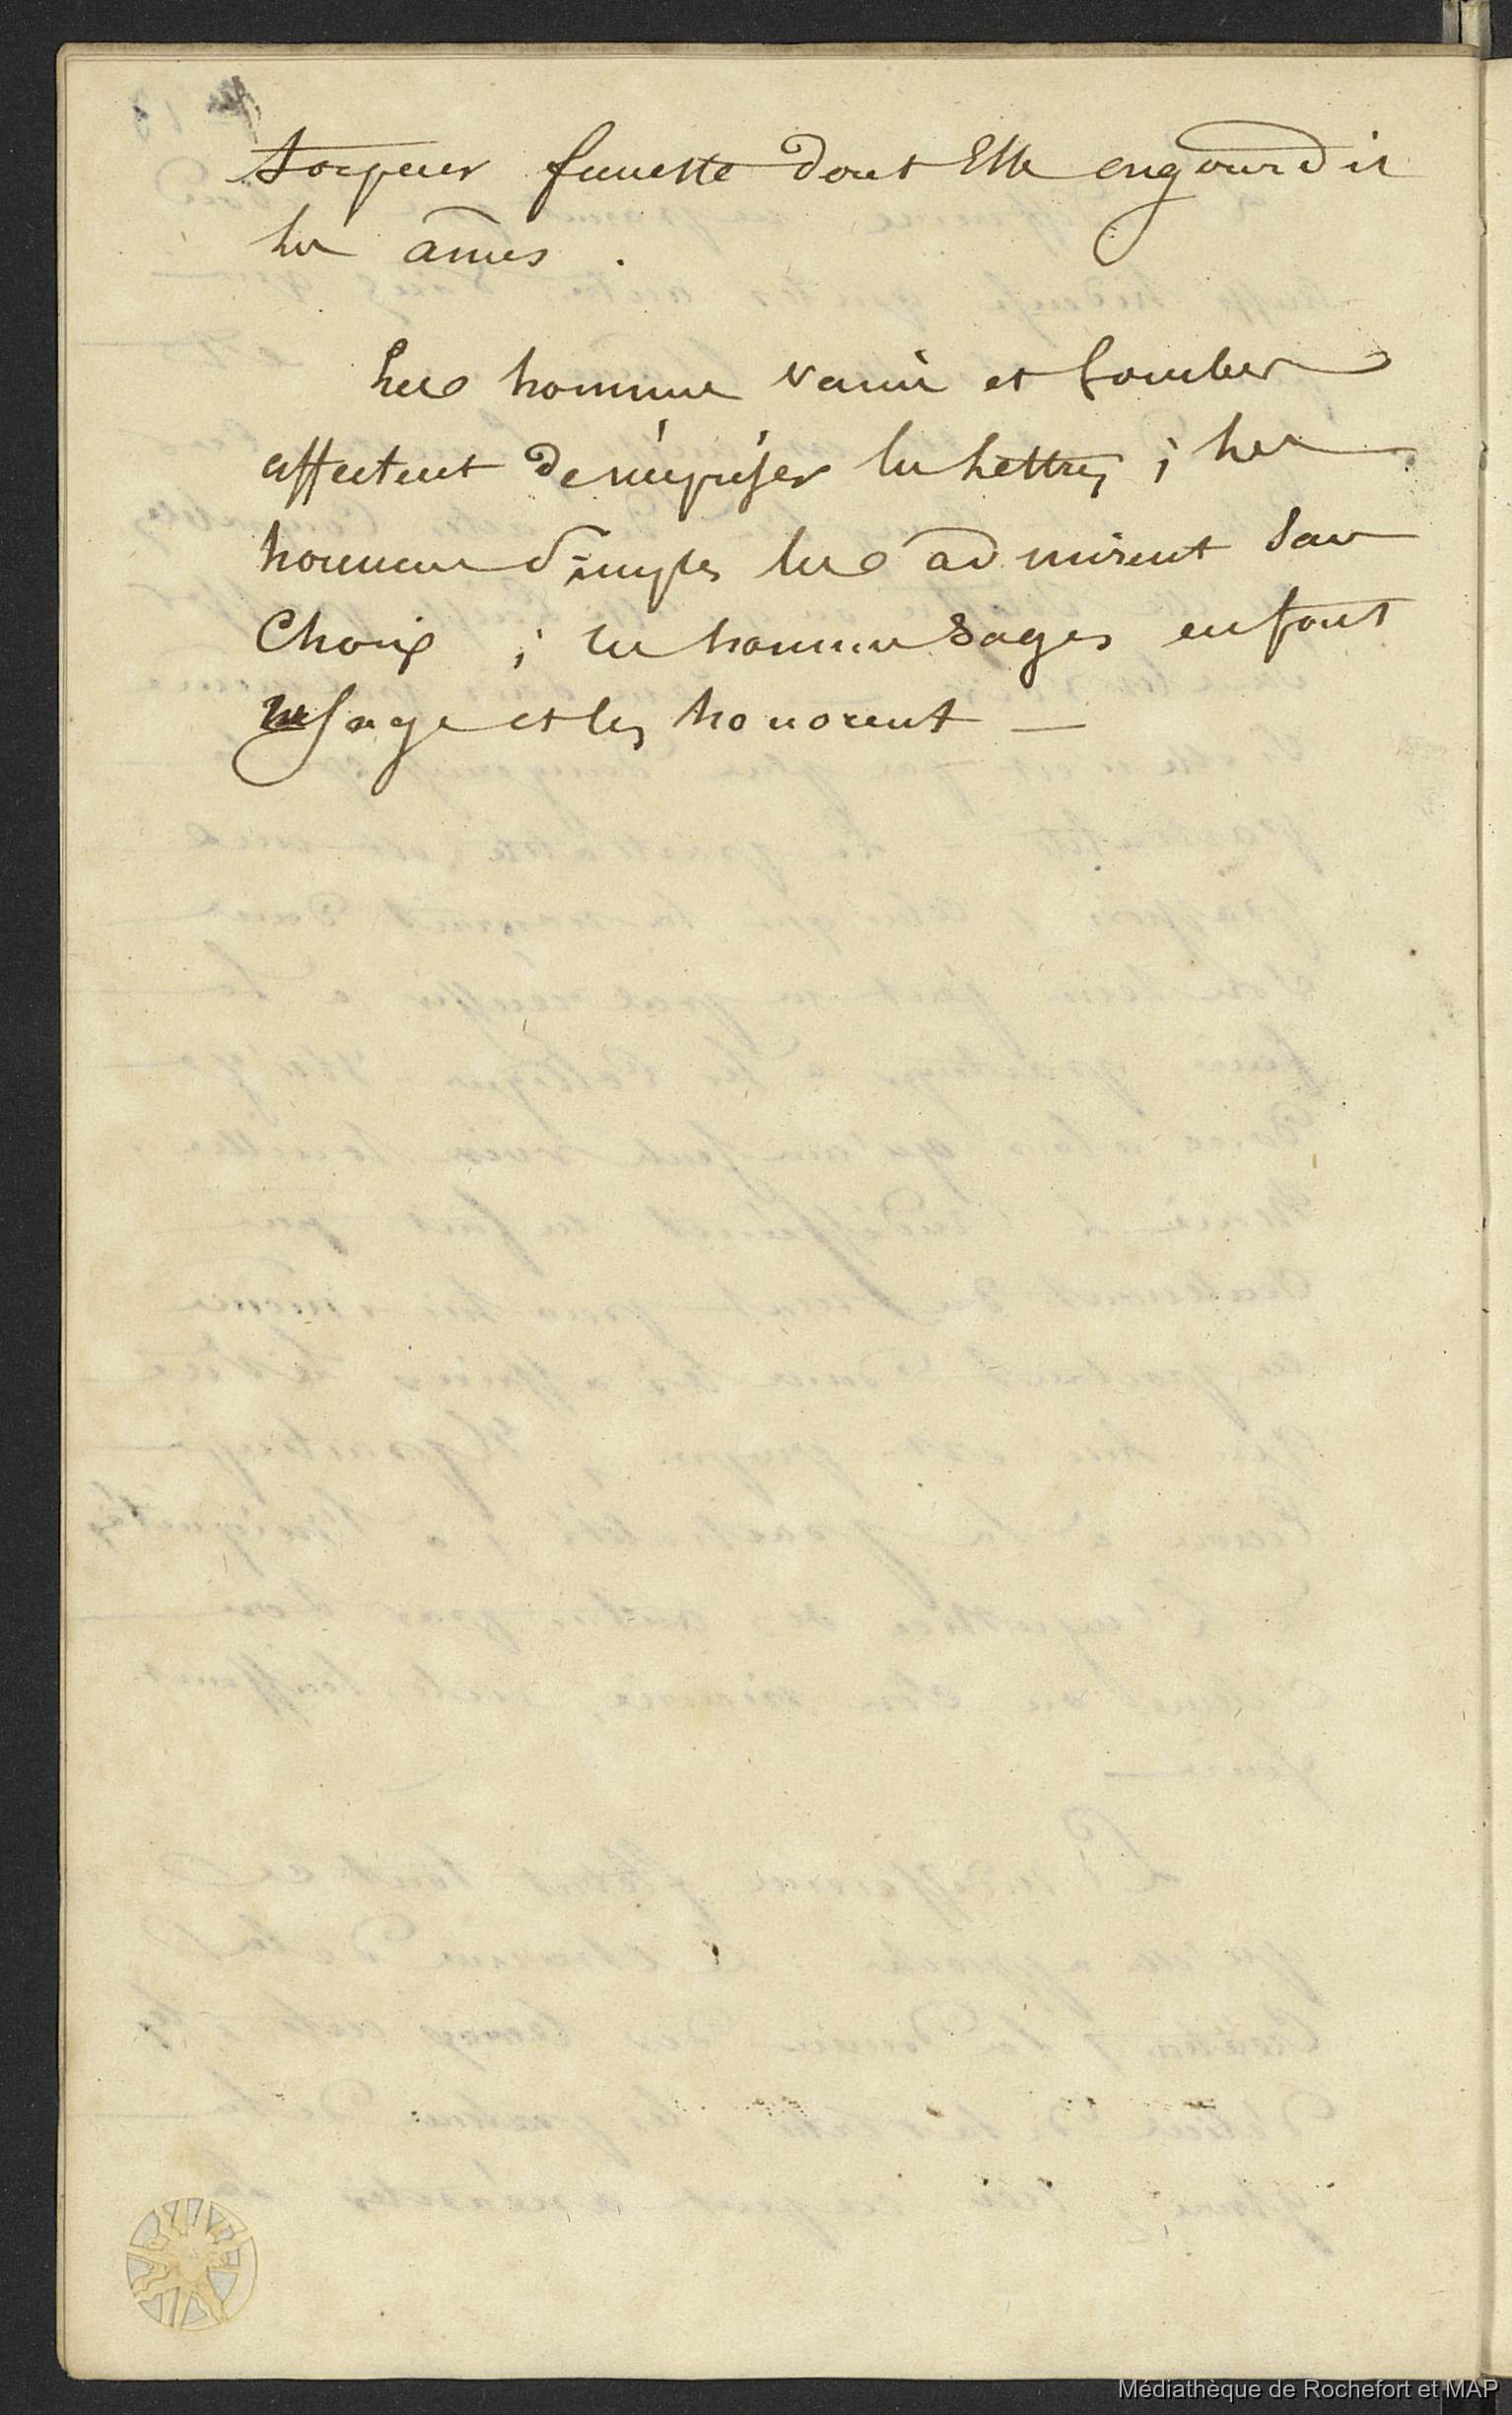 torpeur funeste dont Elle engourdit
les âmes .
Les hommes vains et fourbes
affectent de mépriser les Lettres ; les
hommes simples les admirent sans
Choix ; les hommes sages en font
usage et les honorent —
Médiathèque de Rochefort et MAP